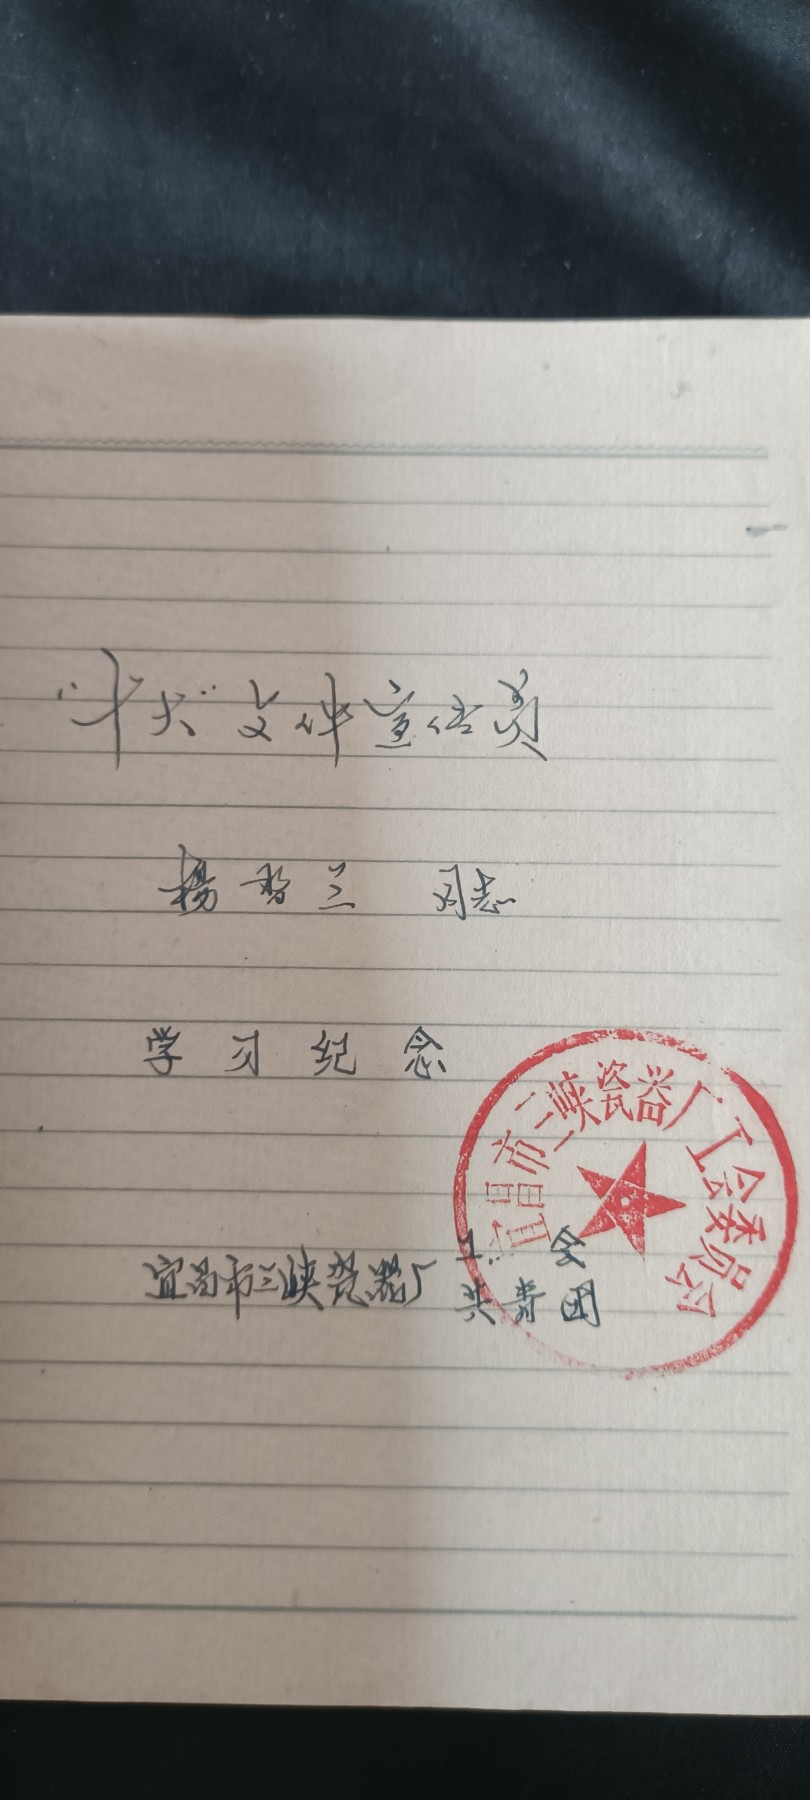 “十大”文件宣传员
楊香兰 同志
学习纪念
宜昌市三峡瓷器厂 工会
共青团
宜昌市三峡瓷器厂工会委员会